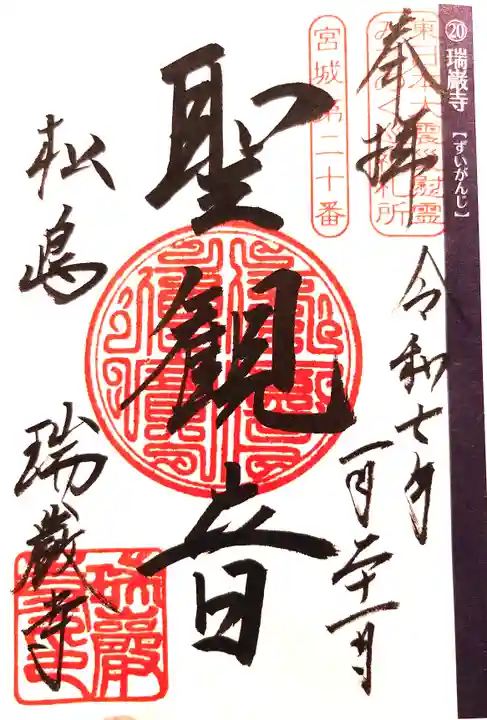 ⑳ 瑞巖寺【ずいがんじ】
東日本大震災慰霊
みちのく巡礼札所
宮城第二十番
奉拝
令和七年
一月二十一日
聖観音
松島
瑞巌寺